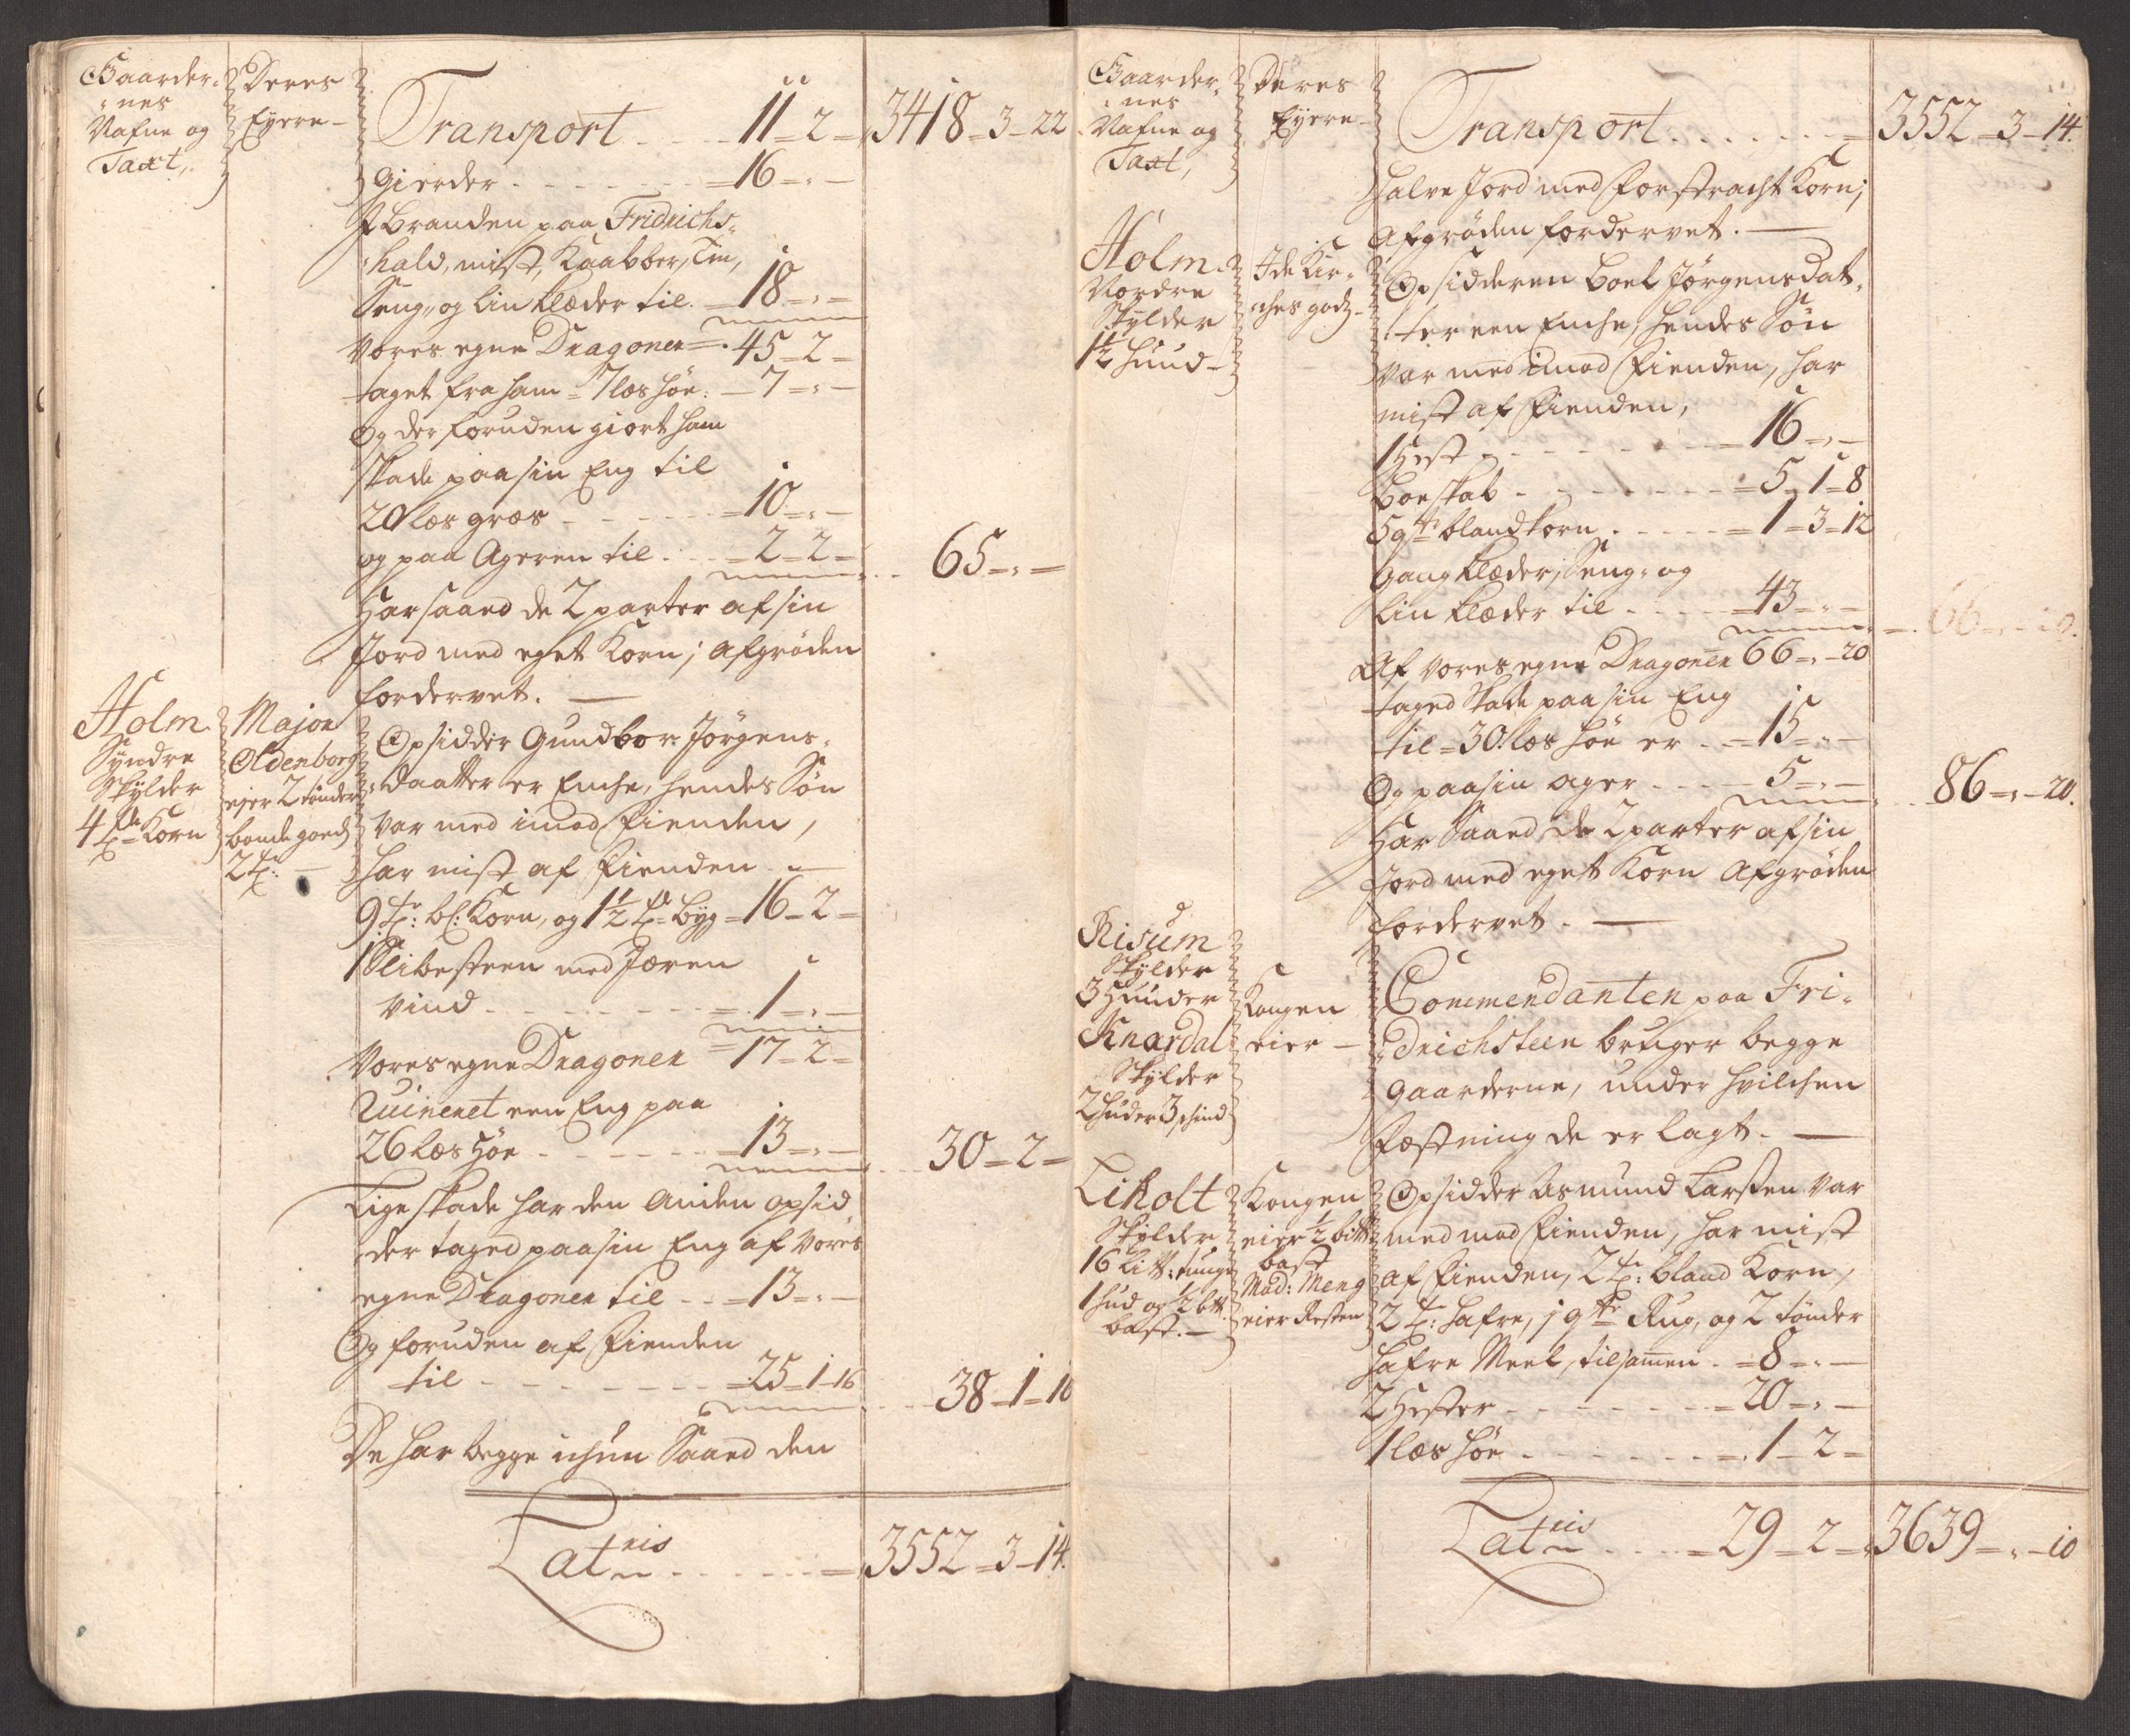 Gaarder-
nes
Nafne og
Taxt,
Deres
Eyere
Transport - - - 11 - 2 - 3418 - 3 - 22
Gierder - - - - - 16 - „ -
J branden paa Fridrichs-
hald, mist, Kaabber, Tin,
Seng, og lin klæder til. - 18 - „ -
Vores egne Dragoner - 45 - 2 -
taget fra ham 7 læs høe. - 7 - „ -
Og der foruden giort ham
skade paa sin Eng til
20 læs græs - - - - 10 - „ -
og paa Ageren til - - - 2 - 2 - 65 - „ -
Har saaed de 2 parter af sin
Jord med eget Korn; afgröden
fordervet. —
Holm
Syndre
Skylder
4 Korn
Major
Oldenborg
ejer 2 tønder
bonde goeds
2
Opsidder Gundbor Jørgens-
daatter er Enche, hendes Søn
var med imod Fienden,
har mist af Fienden
9 bl: Korn, og 1½ byg - 16 - 2 -
1 Slibesteen med Jærn
vind - - - - - - 1 - „ -
Vores egne Dragoner - 17 - 2 -
Ruineret een Eng paa
26 læs Höe - - - - 13 - „ - 30 - 2 -
Lige skade har den Anden opsid-
der taged paa sin Eng af vores
egne Dragoner til - - 13 - „ -
Og foruden af Fienden
til - - - - - 25 - 1 - 16 38 - 1 - 16
De har begge ichun Saaed den
Latris - - - - 3552 - 3 - 14.
Gaarder-
nes
Nafne og
Taxt,
Deres
Eyere
Transport - - - - 3552 - 3 - 14.
halve Jord med forstracht Korn;
Afgröden fordervet. —
Holm
Nordre
Skylder
1½ huud
Jde Kir-
ches godz
Opsidderen boel Jørgensdat-
ter een Enche, hendes Søn
var med imod Fienden, har
mist af Fienden,
1 Hest - - - - - 16 - „ -
boeskab - - - - - 5 - 1 - 8
5 qtr blandkorn - - - 1 - 3 - 12
Gang klæder, Seng- og
lin klæder til - - - 43 - „ -
Af vores egne Dragoner 66 - „ - 20
taged skade paa sin Eng
til 30 læs höe er - - 15 - „ -
Og paa sin ager - - - 5 - „ - 86 - „ - 20.
Har Saaed de 2 parter af sin
Jord med eget Korn Afgröden
fordervet. —
Risum
Skylder
3 Huuder
Knardal
Skylder
2 huder 3 skind
Kongen
eier
Commendanten paa Fri-
drichsteen bruger begge
gaarderne, under hvilchen
Fæstning de er lagt. —
Likolt
Skylder
16 Litt: tunge
1 hud og ½ btt
bast. —
Kongen
eier ½ bitt
bast
Mad: Meng
eier Resten
Opsidder Asmund Larsen var
med mod Fienden, har mist
af Fienden, 2 bland Korn,
2 hafre, 1 qtr Rug, og 2 tønder
hafre Meel, tilsamen - 8 - „ -
2 Hester - - - - - 20 - „ -
1 læs höe - - - - - 1 - 2 -
Latris - - - 29 - 2 - 3639 - „ - 10